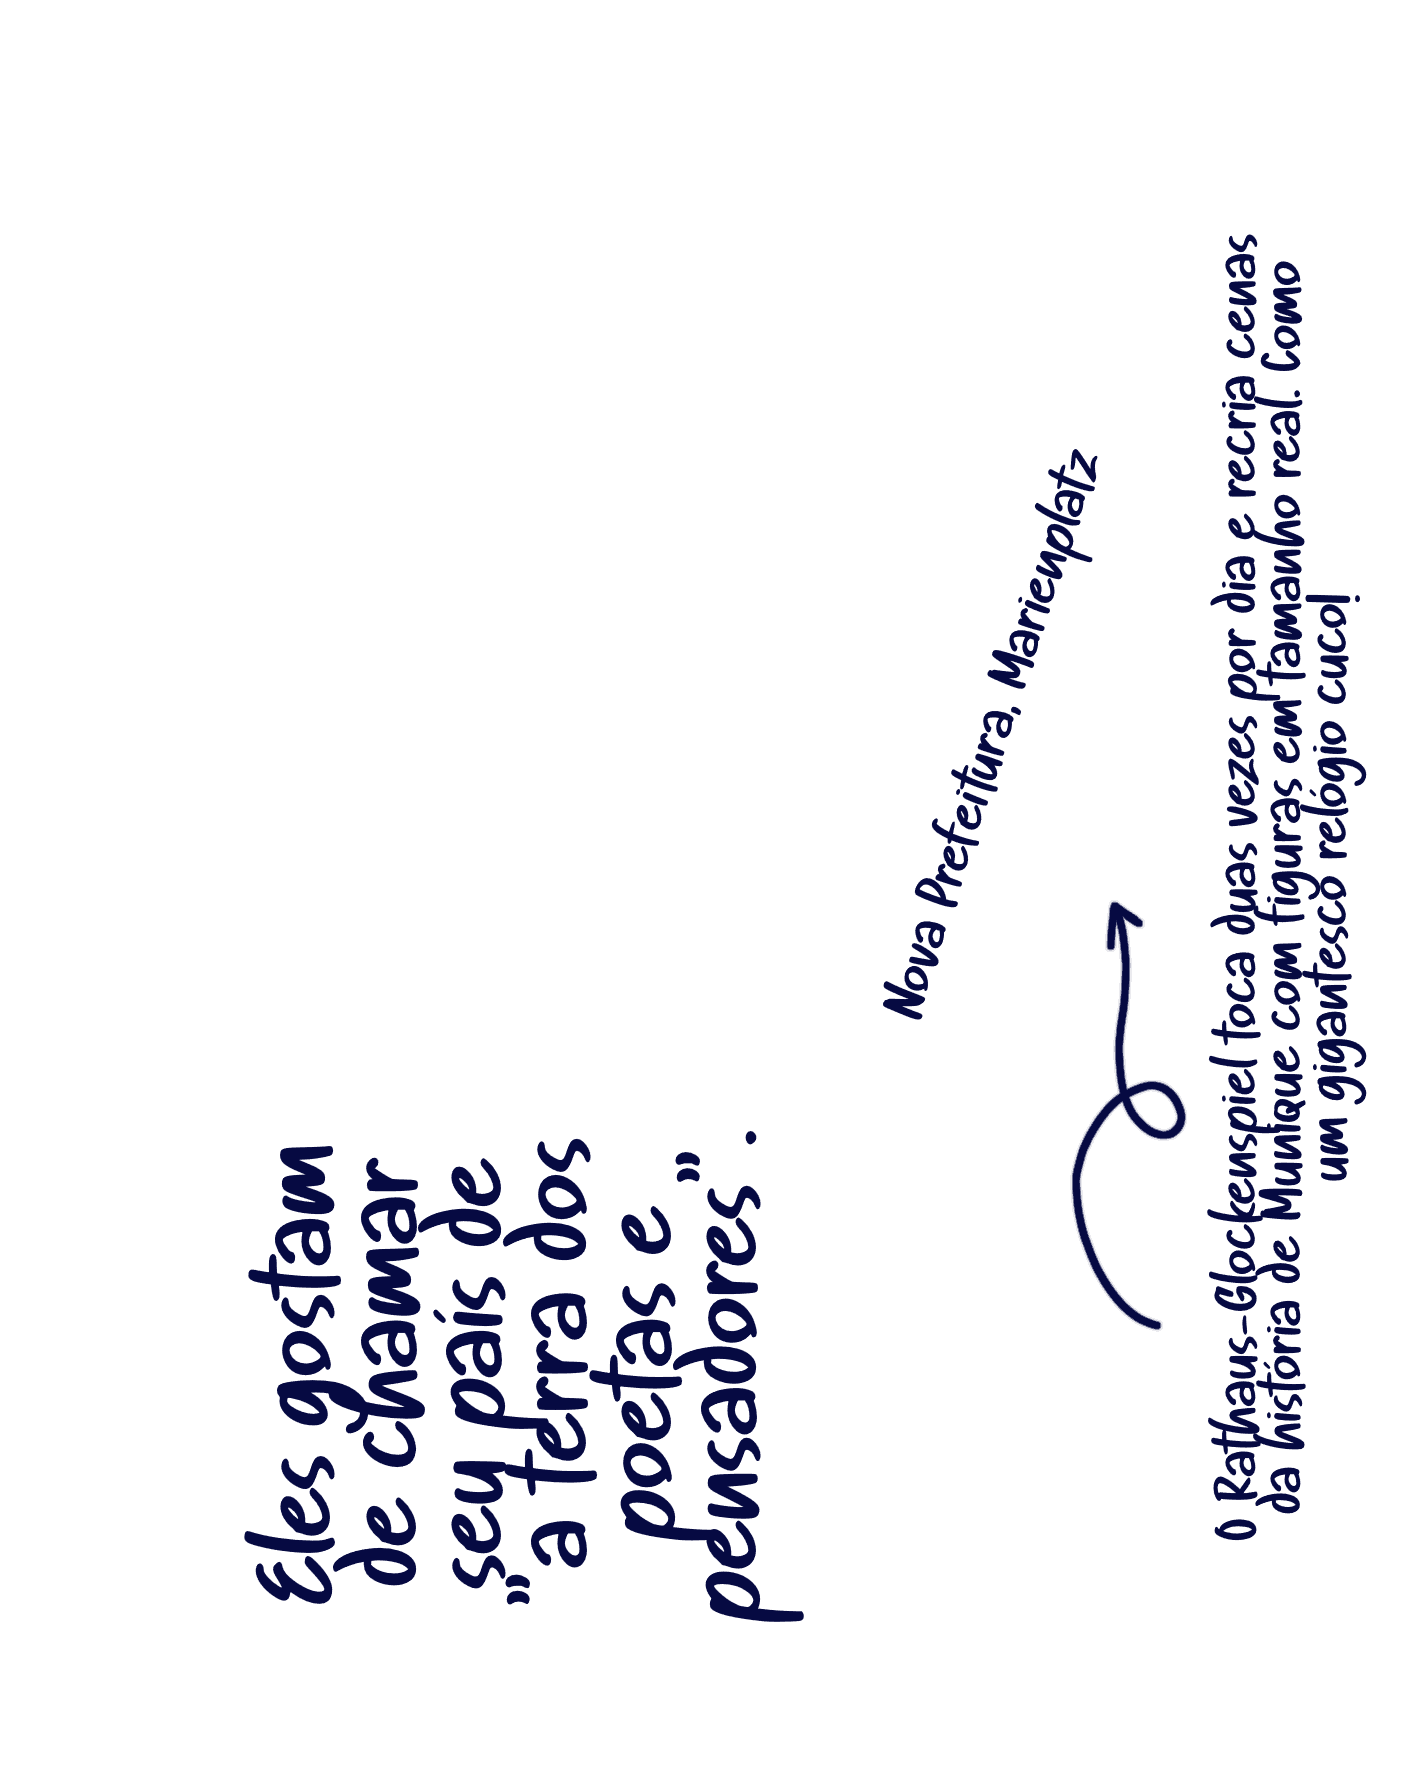 Eles gostam
de chamar
seu país de
"a terra dos
poetas e
pensadores".
Nova Prefeitura, Marienplatz
O Rathaus-Glockenspiel toca duas vezes por dia e recria cenas
da história de Munique com figuras em tamanho real. Como
um gigantesco relógio cuco!